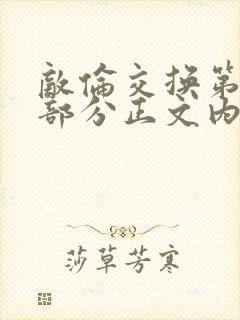 敵倫交换第
部分正文内
莎草芳寒